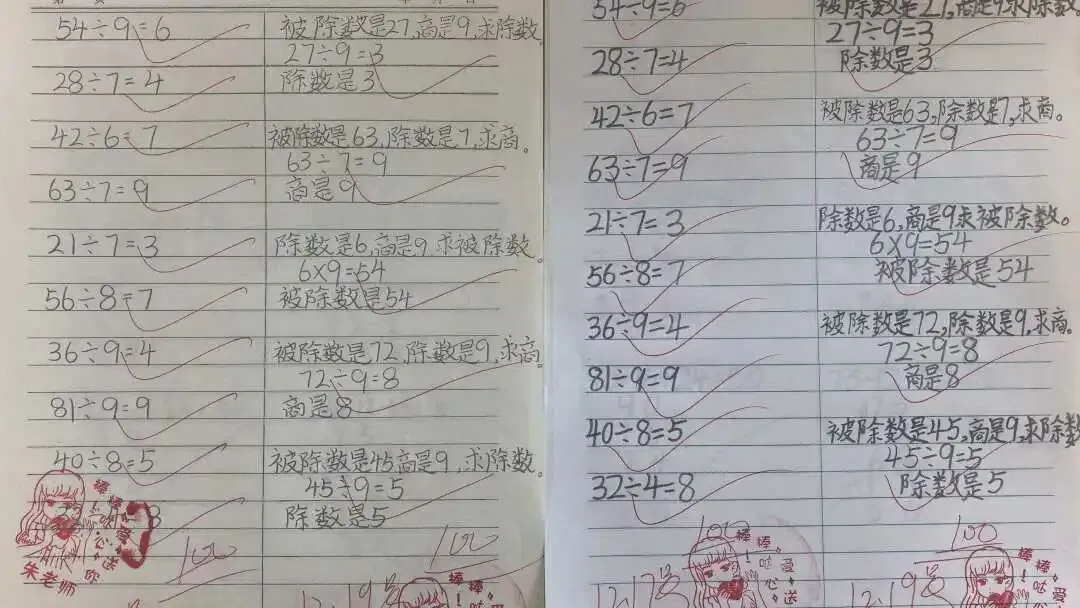 54÷9=6
28÷7=4
42÷6=7
63÷7=9
21÷7=3
56÷8=7
36÷9=4
81÷9=9
40÷8=5
8
朱老师
棒棒哒!爱心送你
100
被除数是27,商是9,求除数。
27÷9=3
除数是3
被除数是63,除数是7,求商。
63÷7=9
商是9
除数是6,商是9.求被除数。
6×9=54
被除数是54
被除数是72,除数是9,求商。
72÷9=8
商是8
被除数是45商是9,求除数。
45÷9=5
除数是5
100
12.19号
棒
54÷9=6
28÷7=4
42÷6=7
63÷7=9
21÷7=3
56÷8=7
36÷9=4
81÷9=9
40÷8=5
32÷4=8
100
12.17号
棒棒哒!爱心送
被除数是27,商是9求除数。
27÷9=3
除数是3
被除数是63,除数是7,求商。
63÷7=9
商是9
除数是6,商是9求被除数。
6×9=54
被除数是54
被除数是72,除数是9,求商。
72÷9=8
商是8
被除数是45,商是9,求除数
45÷9=5
除数是5
100
12.19号
棒棒哒!爱